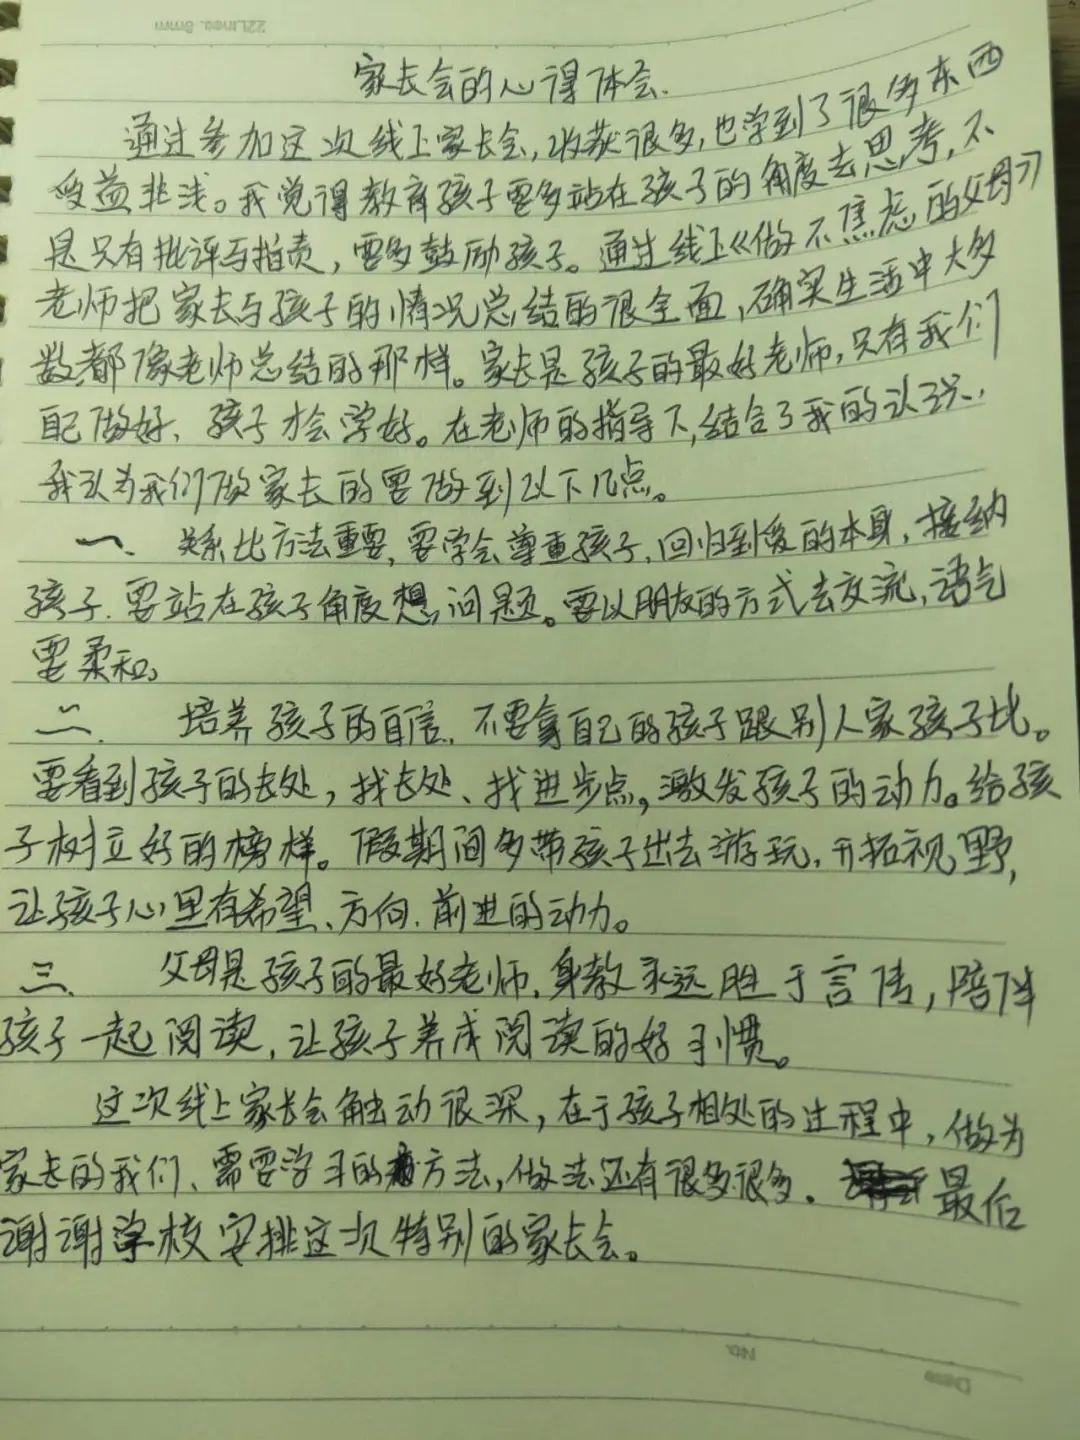 22Lines. 8mm
家长会的心得体会.
通过参加这次线上家长会,收获很多,也学到了很多东西
受益非浅。我觉得教育孩子要多站在孩子的角度去思考,不
是只有批评与指责,要多鼓励孩子。通过线上《做不焦虑的父母》
老师把家长与孩子的情况总结的很全面,确实生活中大多
数都像老师总结的那样。家长是孩子的最好老师,只有我们
自己做好、孩子才会学好。在老师的指导下,结合了我的认识,
我认为我们做家长的要做到以下几点。
一、关系比方法重要,要学会尊重孩子,回归到爱的本身,接纳
孩子.要站在孩子角度想问题。要以朋友的方式去交流,语气
要柔和。
二、培养孩子的自信.不要拿自己的孩子跟别人家孩子比。
要看到孩子的长处,找长处、找进步点,激发孩子的动力。给孩
子树立好的榜样。假期间多带孩子出去游玩,开拓视野,
让孩子心里有希望、方向.前进的动力。
三、父母是孩子的最好老师.身教永远胜于言传,陪伴
孩子一起阅读,让孩子养成阅读的好习惯。
这次线上家长会触动很深,在于孩子相处的过程中,做为
家长的我们、需要学习的方法,做法还有很多很多. 最后
谢谢学校安排这次特别的家长会。
No.
Date